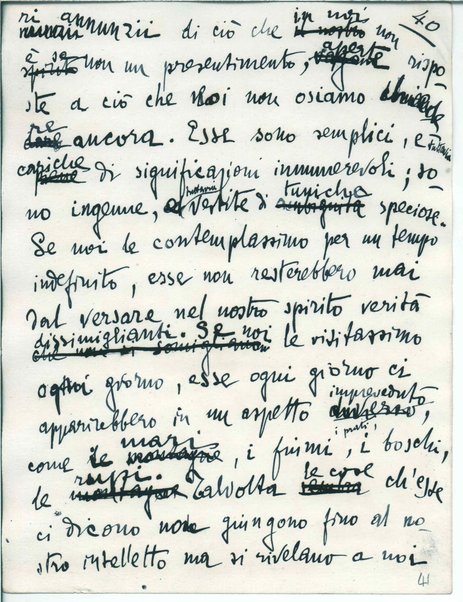 40
ri annunzii di ciò che in noi non
è se non un presentimento, aperte rispo
ste a ciò che noi non osiamo chiede
re ancora. Esse sono semplici, e tuttavia
cariche di significazioni innumerevoli; so
no ingenue, tuttavia vestite di tuniche speciose.
Se noi le contemplassimo per un tempo
indefinito, esse non resterebbero mai
dal versare nel nostro spirito verità
dissimiglianti. Se noi le visitassimo
ogni giorno, esse ogni giorno ci
apparirebbero in un aspetto impreveduto,
come i mari, i fiumi, i prati, i boschi,
le rupi. Talvolta le cose ch'esse
ci dicono non giungono fino al no
stro intelletto ma si rivelano a noi
41